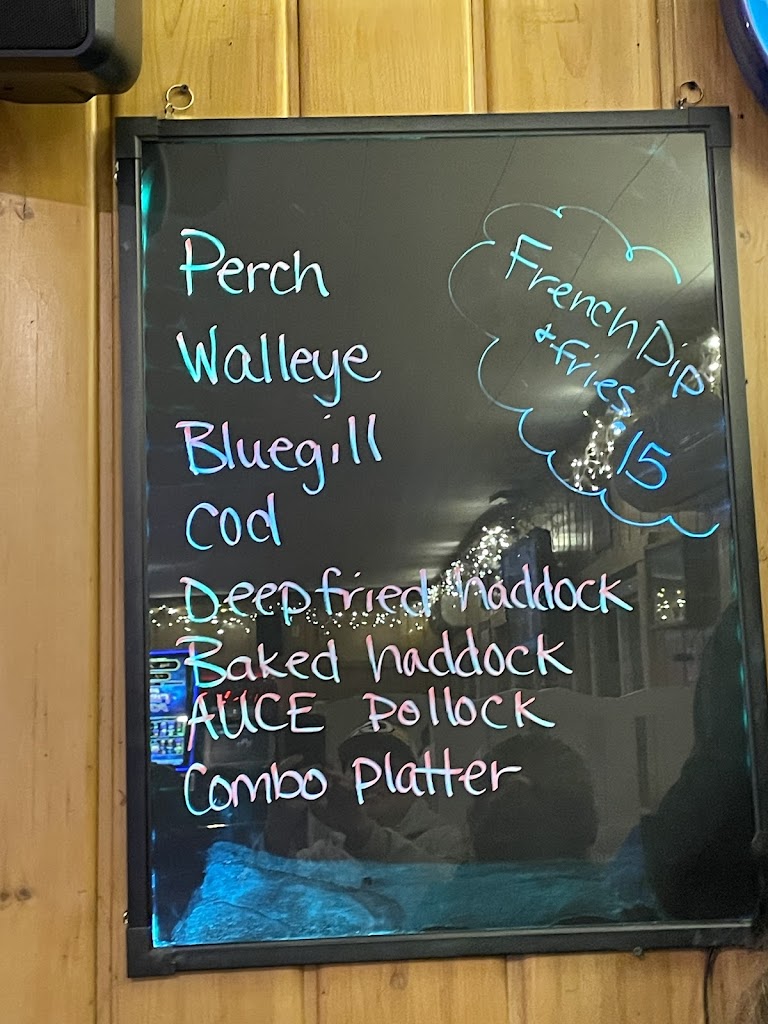 Perch
Walleye
Bluegill
Cod
Deep fried haddock
Baked haddock
AUCE Pollock
Combo Platter
French Dip
& fries
$15